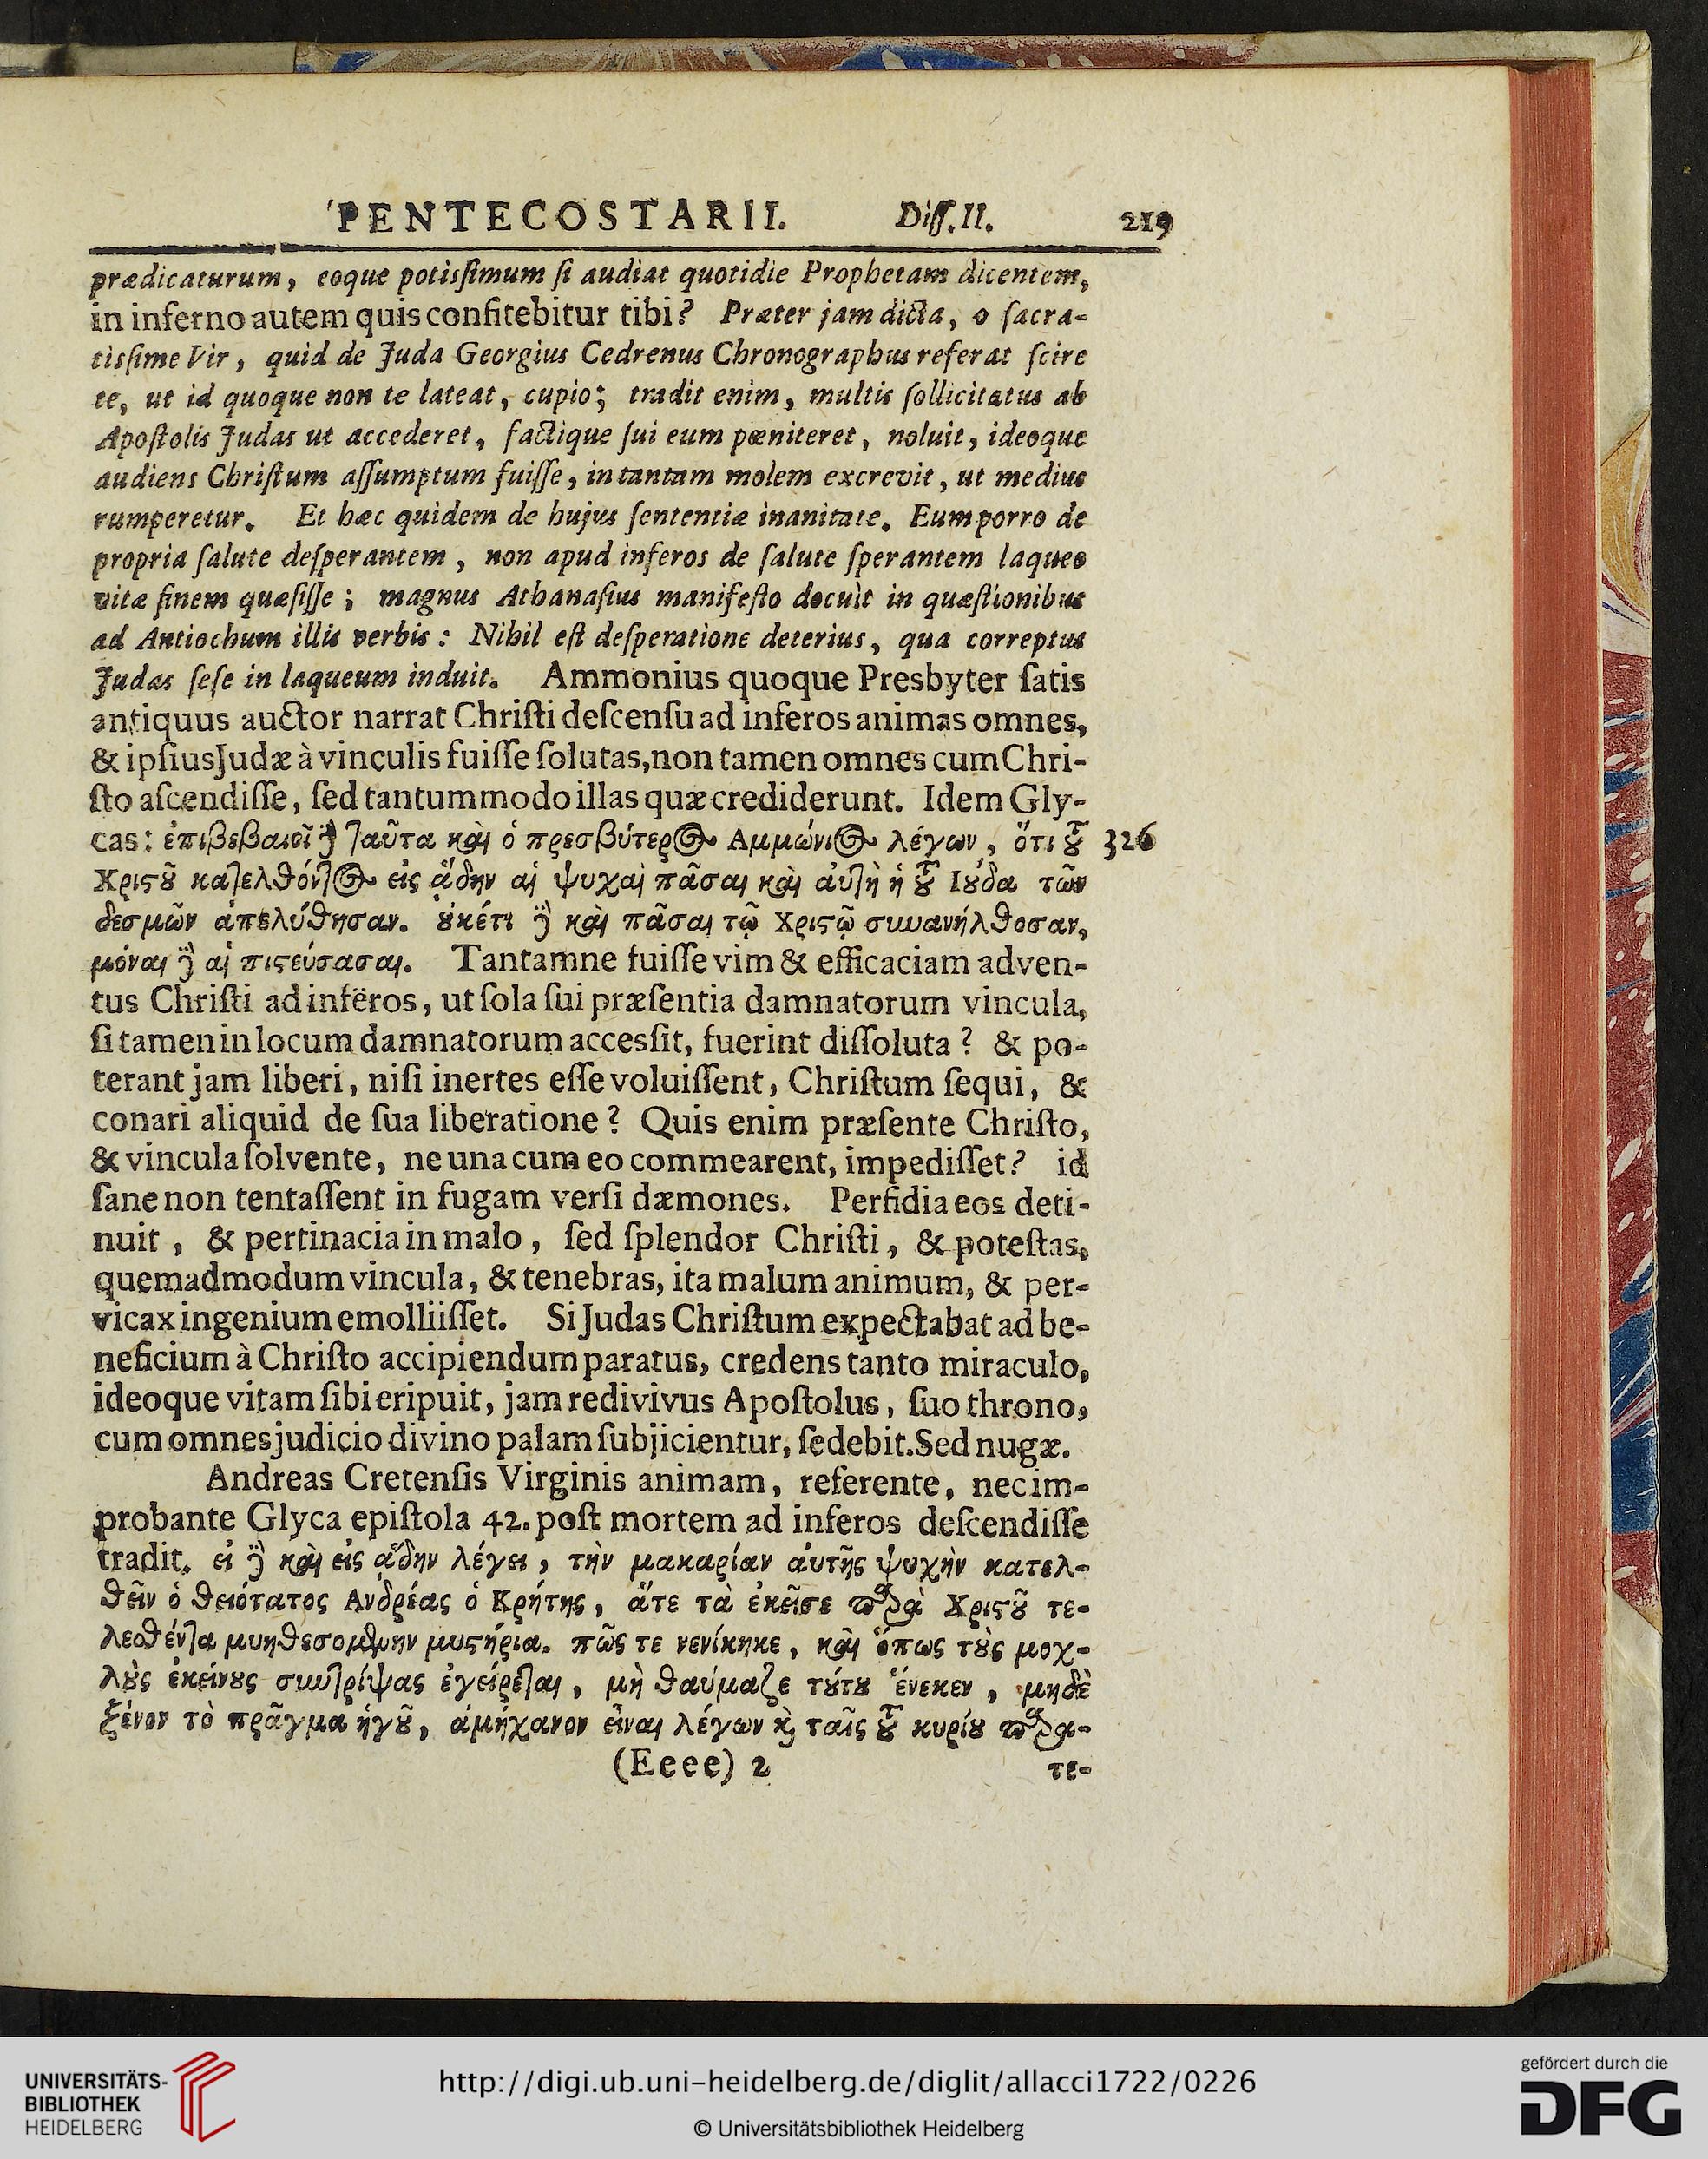 PENTECOSTARII. Diſſ. II. 219
prædicaturum, eoque potisſimum ſi audiat quotidie Prophetam dicentem,
in inferno autem quis confitebitur tibi? Præter jam dicta, o ſacra-
tisſime Vir, quid de Juda Georgius Cedrenus Chronographus referat ſcire
te, ut id quoque non te lateat, cupio; tradit enim, multis ſollicitatus ab
Apoſtolis Judas ut accederet, factique ſui eum pœniteret, noluit, ideoque
audiens Chriſtum aſſumptum fuiſſe, in tantam molem excrevit, ut medius
rumperetur. Et hæc quidem de hujus ſententiæ inanitate. Eum porro de
propria ſalute deſperantem, non apud inferos de ſalute ſperantem laqueo
vitæ finem quæſiſſe; magnus Athanaſius manifeſto docuit in quæſtionibus
ad Antiochum illis verbis: Nihil eſt deſperatione deterius, qua correptus
Judas ſeſe in laqueum induit. Ammonius quoque Presbyter ſatis
antiquus auctor narrat Chriſti deſcenſu ad inferos animas omnes,
& ipſius Judæ à vinculis fuiſſe ſolutas, non tamen omnes cum Chri-
ſto aſcendiſſe, ſed tantummodo illas quæ crediderunt. Idem Gly-
cas: ἐπιβεβαιοῖ δὲ ταῦτα καὶ ὁ πρεσβύτερος Αμμώνιος λέγων, ὅτι τοῦ 326
Χριςȣ͂ κατελθόντος εἰς ᾅδην αἱ ψυχαὶ πᾶσαι καὶ ἀυτὴ ἡ τοῦ Ιȣ́δα τῶν
δεσμῶν ἀπελύθησαν. ȣ̓κέτι δὲ καὶ πᾶσαι τῷ Χριςῷ συνανήλθοσαν,
μόναι δὲ αἱ πιςεύσασαι. Tantamne fuiſſe vim & efficaciam adven-
tus Chriſti ad inferos, ut ſola ſui præſentia damnatorum vincula,
ſi tamen in locum damnatorum accesſit, fuerint diſſoluta? & po-
terant jam liberi, niſi inertes eſſe voluiſſent, Chriſtum ſequi, &
conari aliquid de ſua liberatione? Quis enim præſente Chriſto,
& vincula ſolvente, ne una cum eo commearent, impediſſet? id
ſane non tentaſſent in fugam verſi dæmones. Perfidia eos deti-
nuit, & pertinacia in malo, ſed ſplendor Chriſti, & poteſtas,
quemadmodum vincula, & tenebras, ita malum animum, & per-
vicax ingenium emolliiſſet. Si Judas Chriſtum expectabat ad be-
neficium à Chriſto accipiendum paratus, credens tanto miraculo,
ideoque vitam ſibi eripuit, jam redivivus Apoſtolus, ſuo throno,
cum omnes judicio divino palam ſubjicientur, ſedebit. Sed nugæ.
Andreas Cretenſis Virginis animam, referente, nec im-
probante Glyca epiſtola 42. poſt mortem ad inferos deſcendiſſe
tradit. εἰ δὲ καὶ εἰς ᾅδην λέγει, τὴν μακαρίαν ἀυτῆς ψυχὴν κατελ-
θεῖν ὁ θειότατος Ανδρέας ὁ Κρήτης, ἅτε τὰ ἐκεῖσε παρὰ Χριςȣ͂ τε-
λεσθέντα μυηθεσομένην μυςήρια. πῶς τε νενίκηκε, καὶ ὅπως τȣ̀ς μοχ-
λȣ̀ς ἐκείνȣς συντρίψας ἐγείρεται, μὴ θαύμαζε τȣ́τȣ ἕνεκεν, μηδὲ
ξένον τὸ πρᾶγμα ἡγȣ͂, ἀμήχανον εἶναι λέγων καὶ ταῖς τοῦ κυρίȣ παρα-
(Eeee) 2 τε-
UNIVERSITÄTS-
BIBLIOTHEK
HEIDELBERG
http://digi.ub.uni-heidelberg.de/diglit/allacci1722/0226
© Universitätsbibliothek Heidelberg
gefördert durch die
DFG